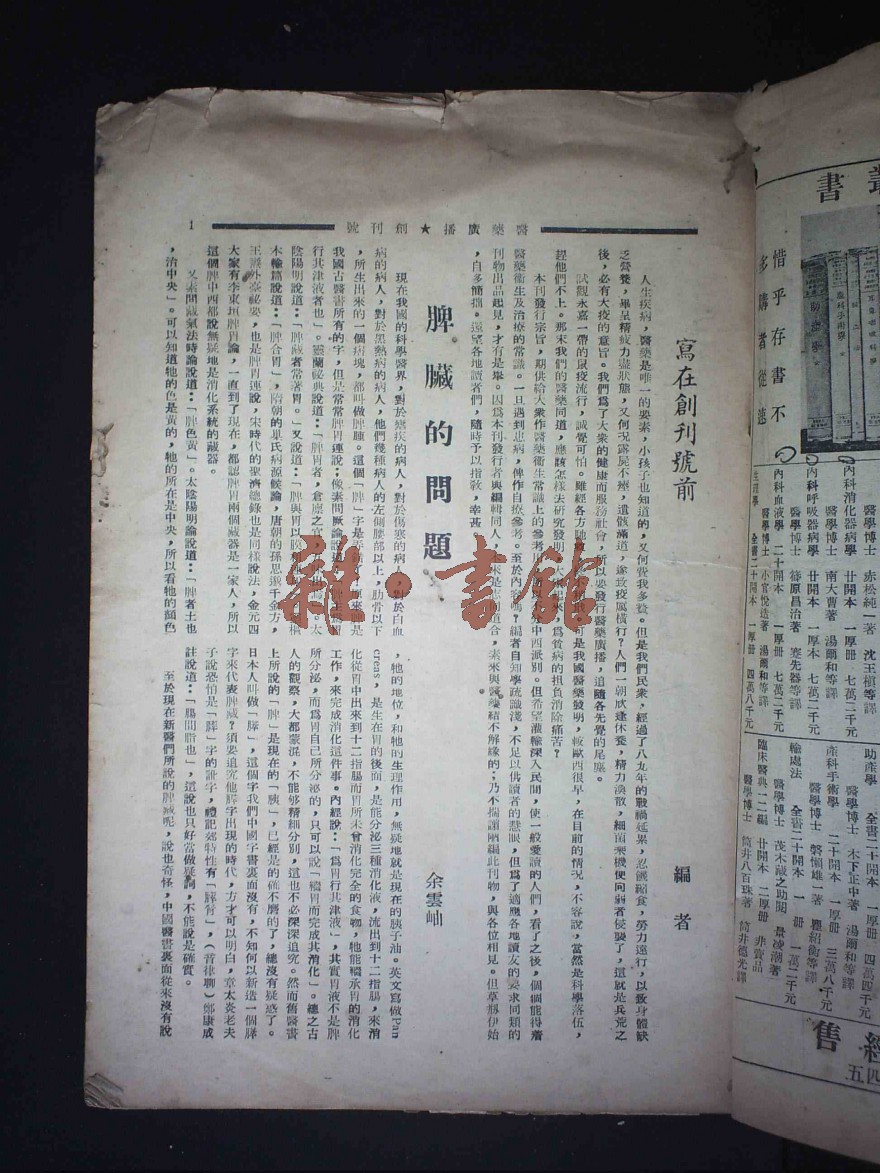 醫藥廣播★創刊號
1
寫在創刊號前
編者
人生疾病，醫藥是唯一的要素，小孩子也知道的，又何費我多贅。但是我們民衆，經過了八九年的戰禍延累，忍饑紹食，勞力遠行，以致身體缺
乏營養，畢呈精疲力盡狀態，又何況露屍不瘞，遺骸滿道，遂致疫厲橫行？人們一朝欣逢休養，精力渙散，細菌乘機便向弱者侵襲了，這就是兵荒之
後，必有大疫的意旨。我們爲了大衆的健康而服務社會，所以要發行醫藥廣播，追隨各先覺的尾塵。
試觀永嘉一帶的鼠疫流行，誠覺可怕。雖經各方馳救
可是我國醫藥發明，較歐西很早，在目前的情况，不容說，當然是科學落伍，
趕他們不上。那末我們的醫藥同道，應該怎樣去研究發明
起來，爲貧病的担負消除痛苦？
本刊發行宗旨，期供給大衆作醫藥衛生常識上的參考
所以不分中西派別。但希望灌輸深入民間，使一般愛讀的人們，看了之後，個個能得着
醫藥衛生及治療的常識。一旦遇到患病，俾作自療參考。至於內容嗎？編者自知學疏識淺，不足以供讀者的慧眼，但爲了適應各地讀友的要求同類的
刊物出品起見，才有是舉。因爲本刊發行者與編輯同人，
是志同道合，素來與醫藥結不解緣的；乃不揣謭陋編此刊物，與各位相見。但草創伊始
，自多簡拙。還望各地讀者們，隨時予以指敎，幸甚
脾臟的問題
余雲岫
現在我國的科學醫界，對於瘧疾的病人，對於傷寒的病人，對於白血
病的病人，對於黑熱病的病人，他們幾種病人的左側腰部以上，肋骨以下
，所生出來的一個病塊，都叫做脾腫。這個「脾」字是
原來脾是
我國古醫書所有的字，但是常常脾胃連說：像素問厥論說道：「脾主爲胃
行其津液者也」。靈蘭祕典說道：「脾胃者，倉廩之官，五味出焉」。太
陰陽明說道：「脾藏者常著胃。」又說道：「脾與胃以膜相連」
木輸篇說道：「脾合胃」，隋朝的巢氏病源候論，唐朝的孫思邈千金方，
王燾外臺祕要，也是脾胃連說，宋時代的聖濟總錄也是同樣說法，金元四
大家有李東垣脾胃論，一直到了現在，都認脾胃兩個藏器是一家人，所以
這個脾中西都說無疑地是消化系統的藏器。
又素問藏氣法時論說道：「脾色黃」。太陰陽明論說道：「脾者土也
，治中央」。可以知道牠的色是黃的，牠的所在是中央，所以看牠的顏色
，牠的地位，和牠的生理作用，無疑地就是現在的胰子油。英文寫做Pan
creas，是生在胃的後面，是能分泌三種消化液，流出到十二指腸，來消
化從胃中出來到十二指腸而胃所未曾消化完全的食物，牠能繼承胃的消化
工作，來完成消化這件事。內經說：「爲胃行其津液」，其實胃液不是脾
所分泌，而爲胃自己所分泌的，只可以說「續胃而完成其消化」。總之古
人的觀察，大都蒙混，不能够精細分別，這也不必深深追究。然而舊醫書
上所說的「脾」是現在的「胰」，已經是的確不磨的了，總沒有疑惑了。
日本人叫做「膵」，這個字我們中國字書裏面沒有，不知何以新造一個膵
字來代表脾臟？須要追究他膵字出現的時代，方才可以明白，章太炎老夫
子說恐怕是「膟」字的訛字，禮記郊特性有「膟膋」，（音律聊）鄭康成
註說道：「腸間脂也」，這說也只好當做疑詞，不能說是確實。
至於現在新醫們所說的脾臟呢，說也奇怪，中國醫書裏面從來沒有說
雜·書館
叢書
惜乎存書不
多購者從速
內科消化器病學 廿開本 一厚冊 七萬二千元
醫學博士 赤松純一著 沈王楨等譯
內科呼吸器病學 廿開本 一厚本 七萬二千元
醫學博士 南大曹著 湯爾和等譯
內科血液學 二十開本 一厚本 七萬二千元
醫學博士 篠原昌治著 蹇先器等譯
生理學 全書二十開本 一厚冊 四萬八千元
醫學博士 小宮悅造著 湯爾和等譯
助產學 全書二十開本 一厚冊 四萬四千元
醫學博士 木下正中著 湯爾和等譯
產科手術學 二十開本 一厚冊 三萬八千元
醫學博士 磐瀨雄一著 龐紹衡等譯
輸處法 全書二十開本 一冊 一萬二千元
醫學博士 茂木藏之助閱 景凌灝著
臨床醫典一二編 廿開本 二厚冊 非賣品
醫學博士 筒井八百珠著 筒井德光譯
經售
四五